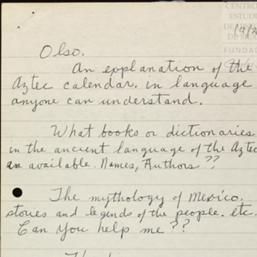 CENTRO
ESTUDI
DE
FUNDA
Olso.
An explanation of the
Aztec calendar. in language
anyone can understand.
What books or dictionaries
in the ancient language of the Aztec
are available. Names, Authors ??
The mythology of Mexico.
stories and legends of the people. etc.
Can you help me ??